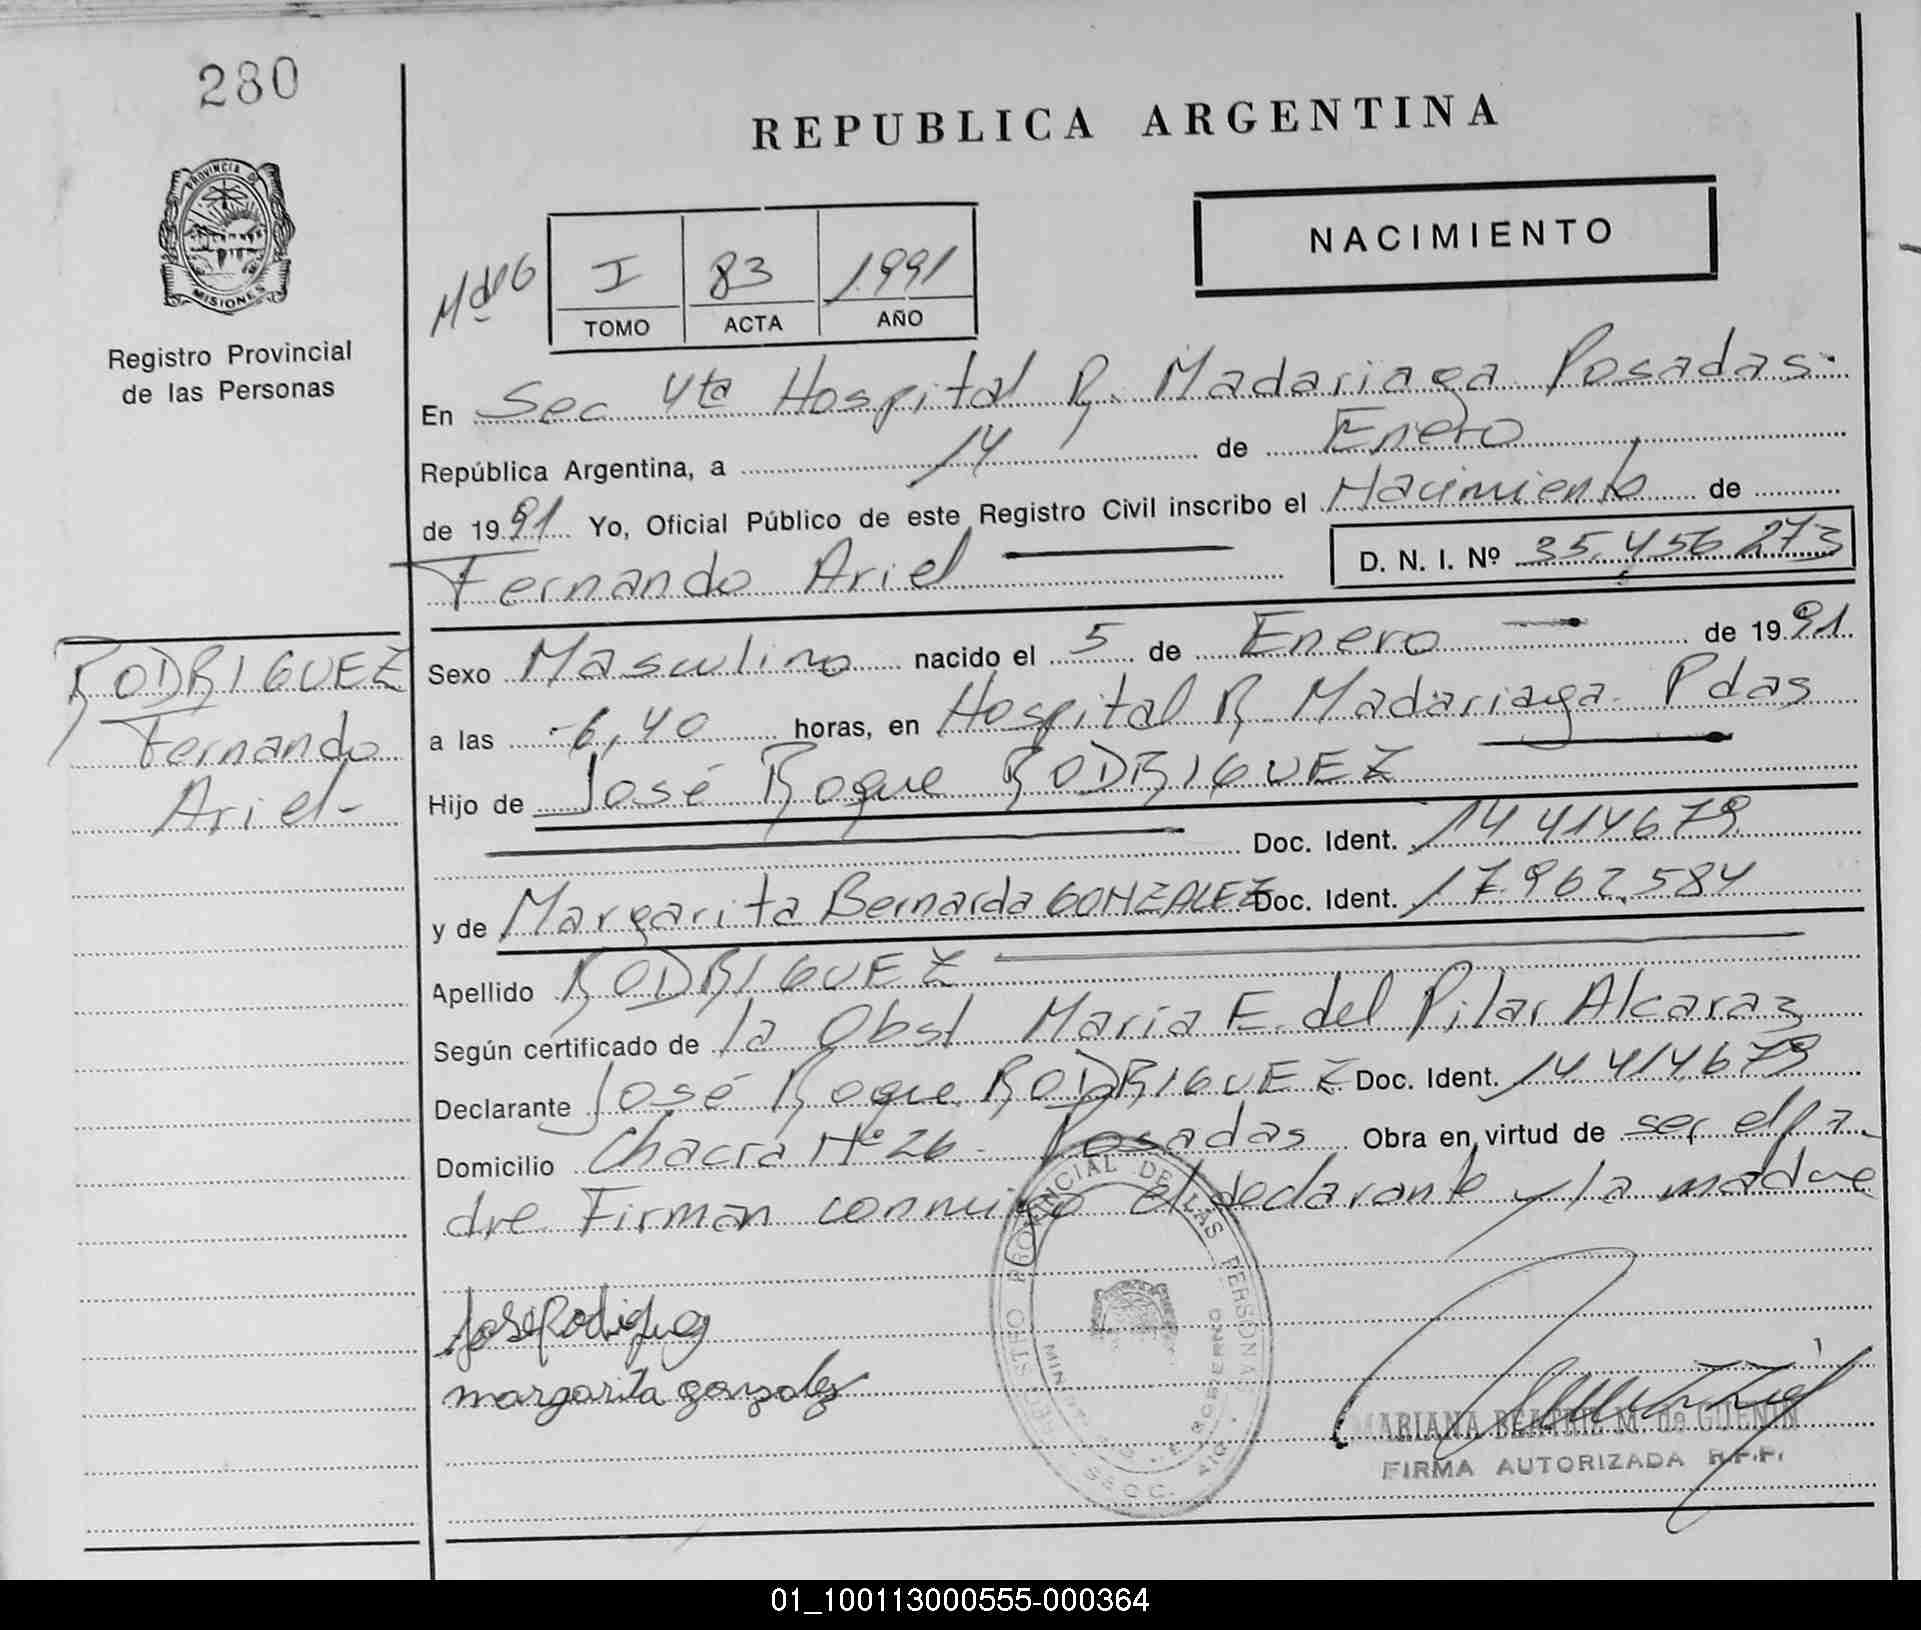 280
REPUBLICA ARGENTINA
NACIMIENTO
PROVINCIA DE
MISIONES
Registro Provincial
de las Personas
I 83 1991
TOMO ACTA AÑO
En Sec 4ta Hospital R. Madariaga Posadas
República Argentina, a 14 de Enero
de 1991 Yo, Oficial Público de este Registro Civil inscribo el Nacimiento de
Fernando Ariel D. N. I. Nº 35.456 273
RODRIGUEZ
Fernando
Ariel-
Sexo Masculino nacido el 5 de Enero de 1991
a las 6,40 horas, en Hospital R. Madariaga. Pdas
Hijo de José Roque RODRIGUEZ
Doc. Ident. 14 414679
y de Margarita Bernarda GONZALEZ Doc. Ident. 17.962.584
Apellido RODRIGUEZ
Según certificado de la Obst Maria E. del Pilar Alcaraz
Declarante José Roque RODRIGUEZ Doc. Ident. 14.414.679
Domicilio Chacra Nº 26 - Posadas Obra en virtud de ser el pa-
dre Firman conmigo el declarante y la madre
José Rodriguez
margarita gonzalez
PROVINCIAL DE LAS PERSONAS
MARIANA BEATRIZ M. de GUENIN
FIRMA AUTORIZADA R.P.P.
01_100113000555-000364